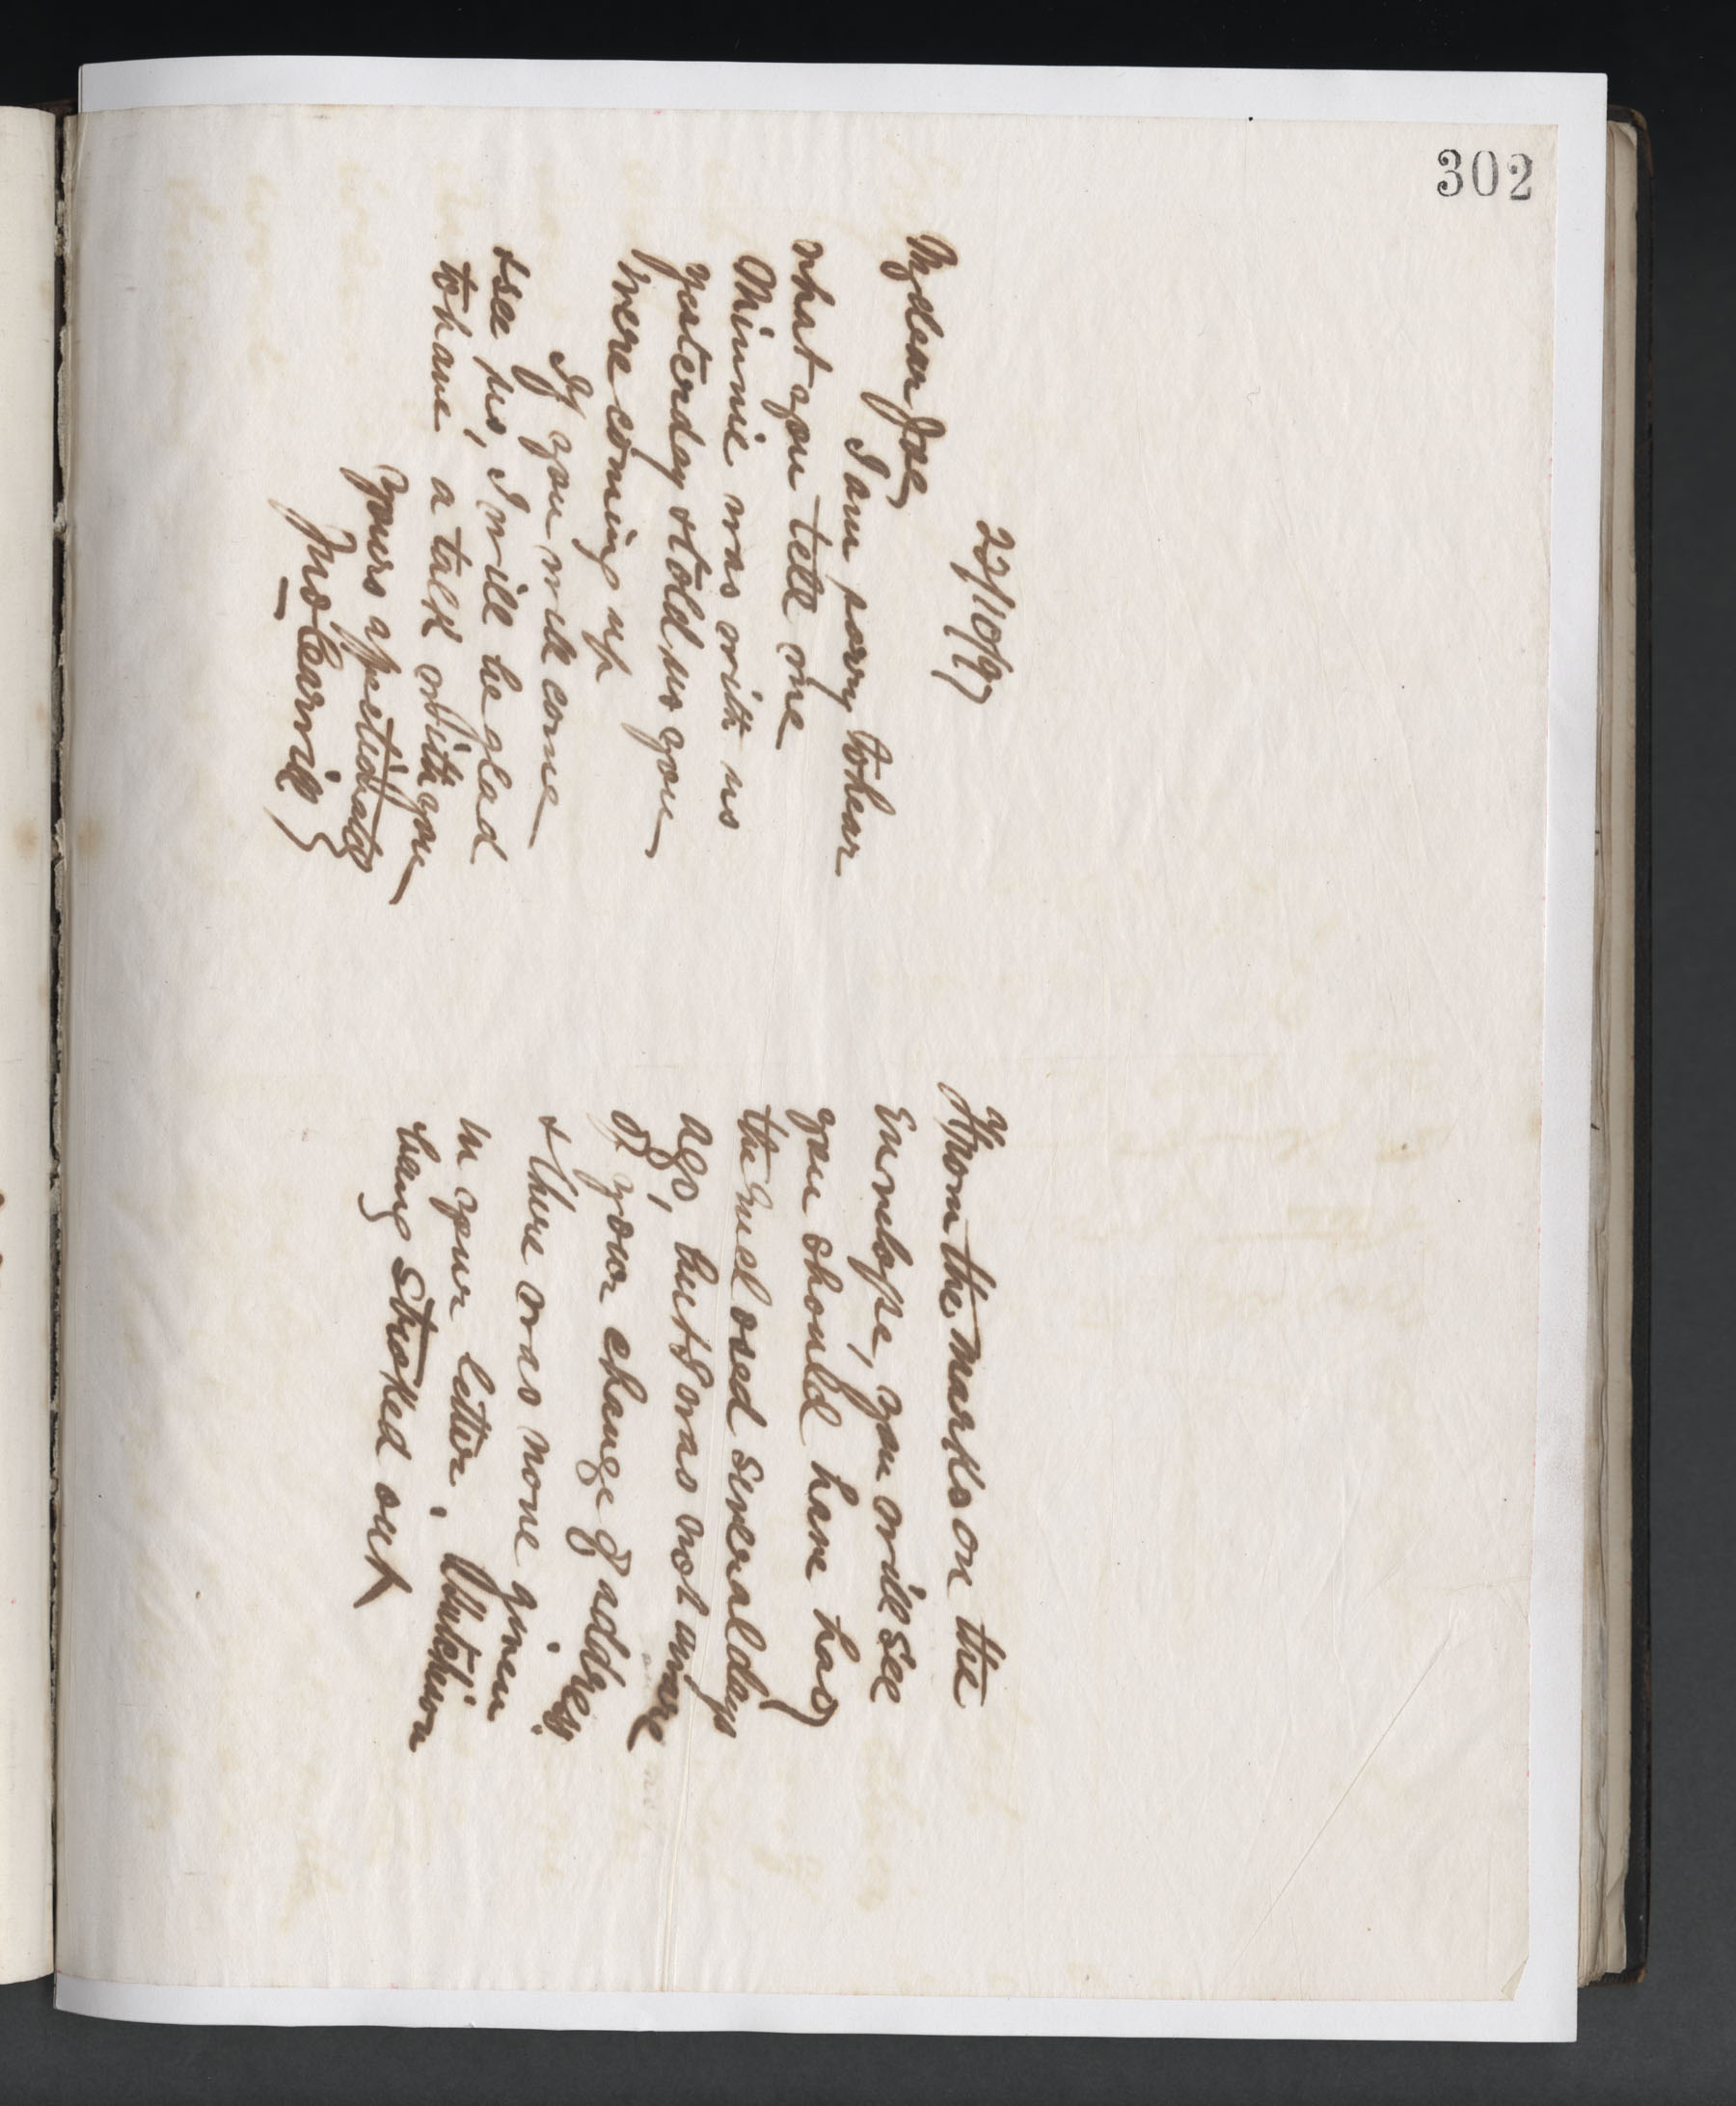 302
22/10/97
My dear Joe
I am sorry to hear
what you tell me
Minnie was with us
yesterday & told us you
were coming up
If you will come
& see us, I will be glad
to have a talk with you
Yours affectionately
Jno Carrick
From the marks on the
Envelope, you will see
you should have has
the enclosed several days
ago, but I was not aware
of your change of address
& there was none given
in your letter, Hutcheson
being stroked out